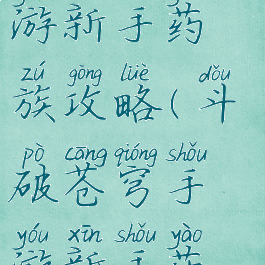 游新手药
zú gōng lüè dǒu
族攻略(斗
pò cāng qióng shǒu
破苍穹手
yóu xīn shǒu yào
游新手药